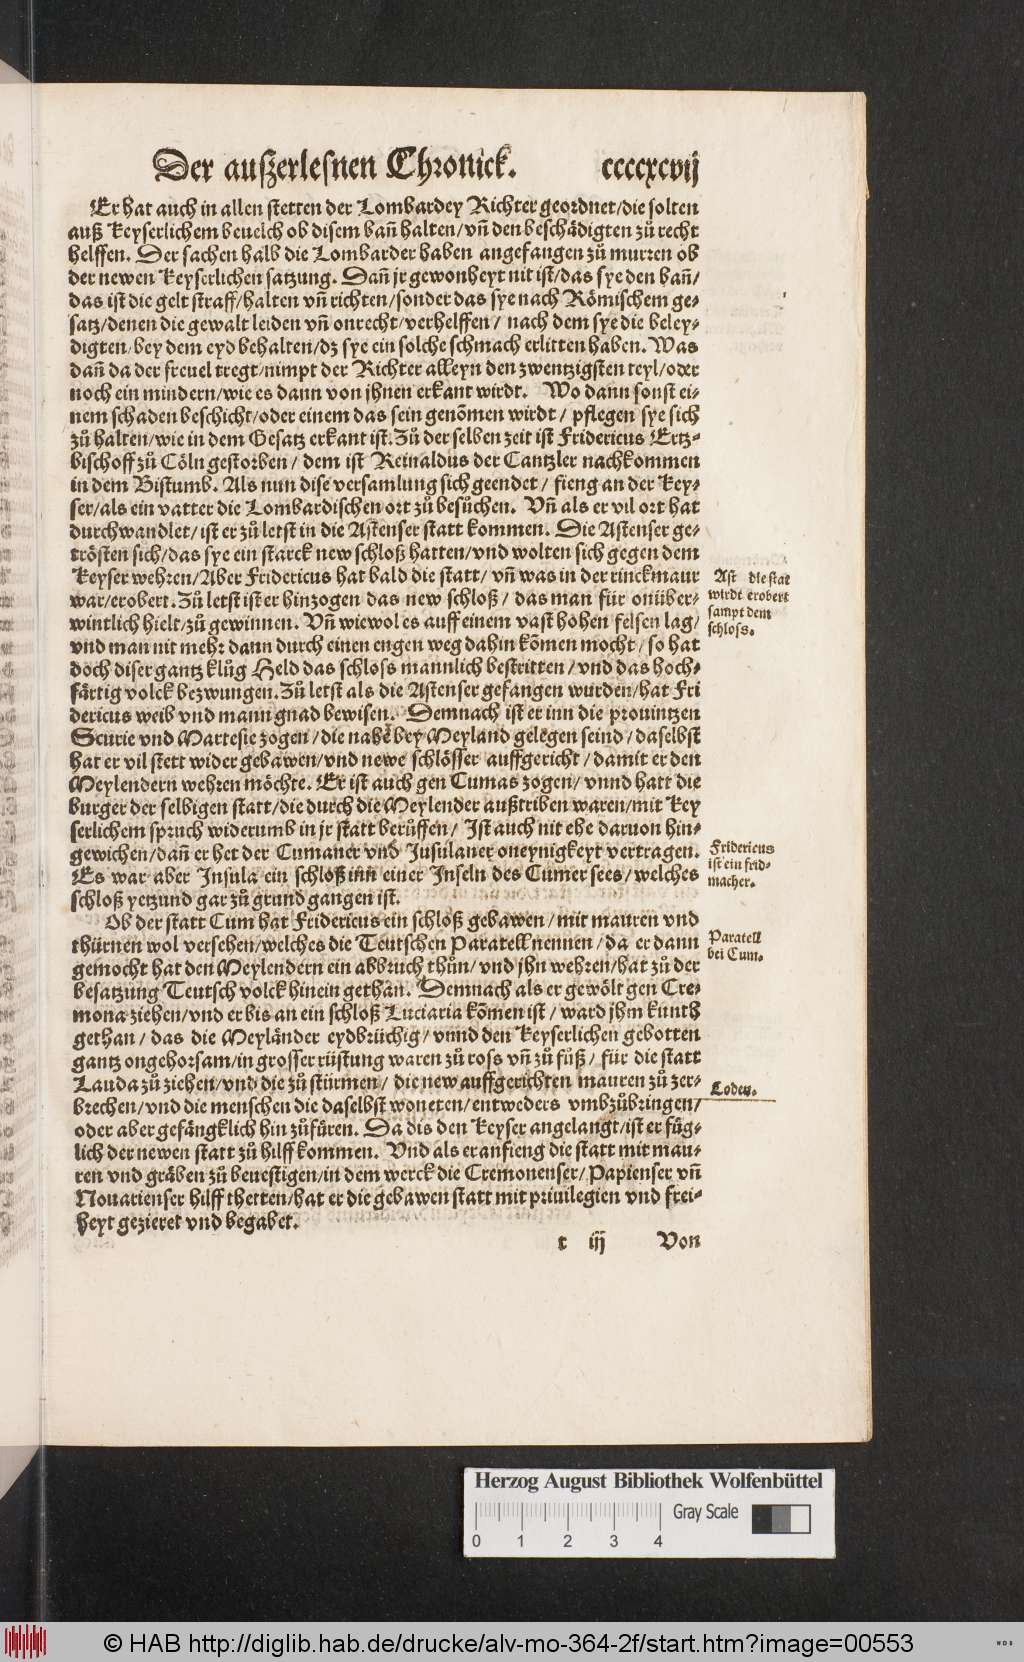 Der auszerlesnen Chronick. ccccxcvij
Er hat auch in allen stetten der Lombardey Richter geordnet/die solten
auß Keyserlichem beuelch ob disem bañ halten/vñ den beschädigten zů recht
helffen. Der sachen halb die Lombarder haben angefangen zů murren ob
der newen Keyserlichen satzung. Dañ jr gewonheyt nit ist/das sye den bañ/
das ist die gelt straff/halten vñ richten/sonder das sye nach Römischem ge-
satz/denen die gewalt leiden vñ onrecht/verhelffen/ nach dem sye die beley-
digten/bey dem eyd behalten/dz sye ein solche schmach erlitten haben. Was
dañ da der freuel tregt/nimpt der Richter alleyn den zwentzigsten teyl/oder
noch ein mindern/wie es dann von jhnen erkant wirdt. Wo dann sonst ei-
nem schaden beschicht/oder einem das sein genõmen wirdt/ pflegen sye sich
zů halten/wie in dem Gesatz erkant ist. Zů der selben zeit ist Fridericus Ertz-
bischoff zů Cöln gestorben/ dem ist Reinaldus der Cantzler nachkommen
in dem Bistumb. Als nun dise versamlung sich geendet/ fieng an der Key-
ser/als ein vatter die Lombardischen ort zů besůchen. Vñ als er vil ort hat
durchwandlet/ist er zů letst in die Astenser statt kommen. Die Astenser ge-
trösten sich/das sye ein starck new schloß hatten/vnd wolten sich gegen dem
Keyser wehren/Aber Fridericus hat bald die statt/ vñ was in der rinckmaur
war/erobert. Zů letst ist er hinzogen das new schloß/ das man für onüber-
wintlich hielt/zů gewinnen. Vñ wiewol es auff einem vast hohen felsen lag/
vnd man nit mehr dann durch einen engen weg dahin kõmen mocht/ so hat
doch diser gantz klůg Held das schloss mannlich bestritten/vnd das hoch-
färtig volck bezwungen. Zů letst als die Astenser gefangen wurden/hat Fri
dericus weib vnd mann gnad bewisen. Demnach ist er inn die prouintzen
Scurie vnd Martesie zogen/die nahe bey Meyland gelegen seind/daselbst
hat er vil stett wider gebawen/vnd newe schlösser auffgericht/damit er den
Meylendern wehren möchte. Er ist auch gen Cumas zogen/vnnd hatt die
burger der selbigen statt/die durch die Meylender außtriben waren/mit Key
serlichem spruch widerumb in jr statt berůffen/ Ist auch nit ehe daruon hin-
gewichen/dañ er het der Cumaner vnd Jusulaner oneynigkeyt vertragen.
Es war aber Insula ein schloß inn einer Inseln des Cumer sees/welches
schloß yetzund gar zů grund gangen ist.
Ob der statt Cum hat Fridericus ein schloß gebawen/mit mauren vnd
thürnen wol versehen/welches die Teutschen Paratell nennen/da er dann
gemocht hat den Meylendern ein abbruch thůn/vnd jhn wehren/hat zů der
besatzung Teutsch volck hinein gethan. Demnach als er gewölt gen Cre-
mona ziehen/vnd er bis an ein schloß Luciaria kõmen ist/ ward jhm kunth
gethan/ das die Meyländer eydbrüchig/ vnnd den Keyserlichen gebotten
gantz ongehorsam/in grosser rüstung waren zů ross vñ zů fůß/ für die statt
Lauda zů ziehen/vnd die zů stürmen/ die new auffgerichten mauren zů zer-
brechen/vnd die menschen die daselbst woneten/entweders vmbzůbringen/
oder aber gefängklich hin zůfüren. Da dis den Keyser angelangt/ist er füg-
lich der newen statt zů hilff kommen. Vnd als er anfieng die statt mit mau-
ren vnd gräben zů beuestigen/in dem werck die Cremonenser/Papienser vñ
Nouarienser hilff thetten/hat er die gebawen statt mit priuilegien vnd frei-
heyt gezieret vnd begabet.
t iij Von
Ast die stat
wirdt erobert
sampt dem
schloss.
Fridericus
ist ein frid-
macher.
Paratell
bei Cum.
Loden.
Herzog August Bibliothek Wolfenbüttel
Gray Scale
0 1 2 3 4
© HAB http://diglib.hab.de/drucke/alv-mo-364-2f/start.htm?image=00553